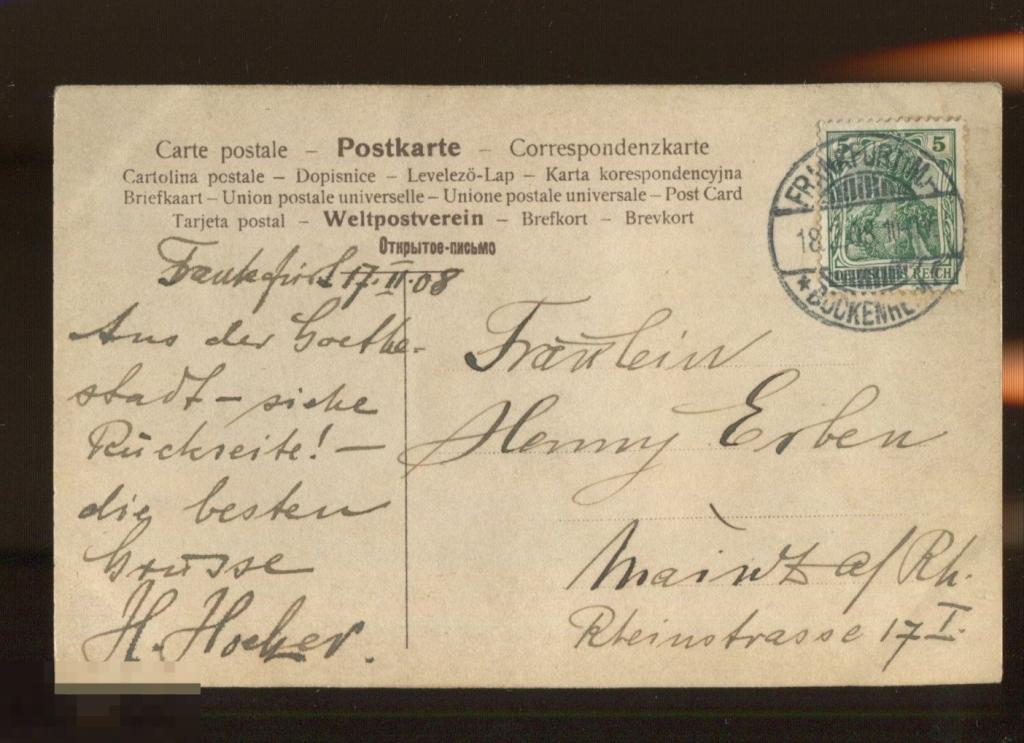 Carte postale – Postkarte – Correspondenzkarte
Cartolina postale – Dopisnice – Levelező-Lap – Karta korespondencyjna
Briefkaart – Union postale universelle – Unione postale universale – Post Card
Tarjeta postal – Weltpostverein – Brefkort – Brevkort
Открытое-письмо
Frankfurt 17.II.08
Aus der Goethe-
stadt – siehe
Rückseite! –
die besten
Grüsse
H.
Fräulein
Henny Erben
Mainz a/Rh.
Rheinstrasse 17 I.
5
REICH
FRANKFURT
18
BOCKENHE